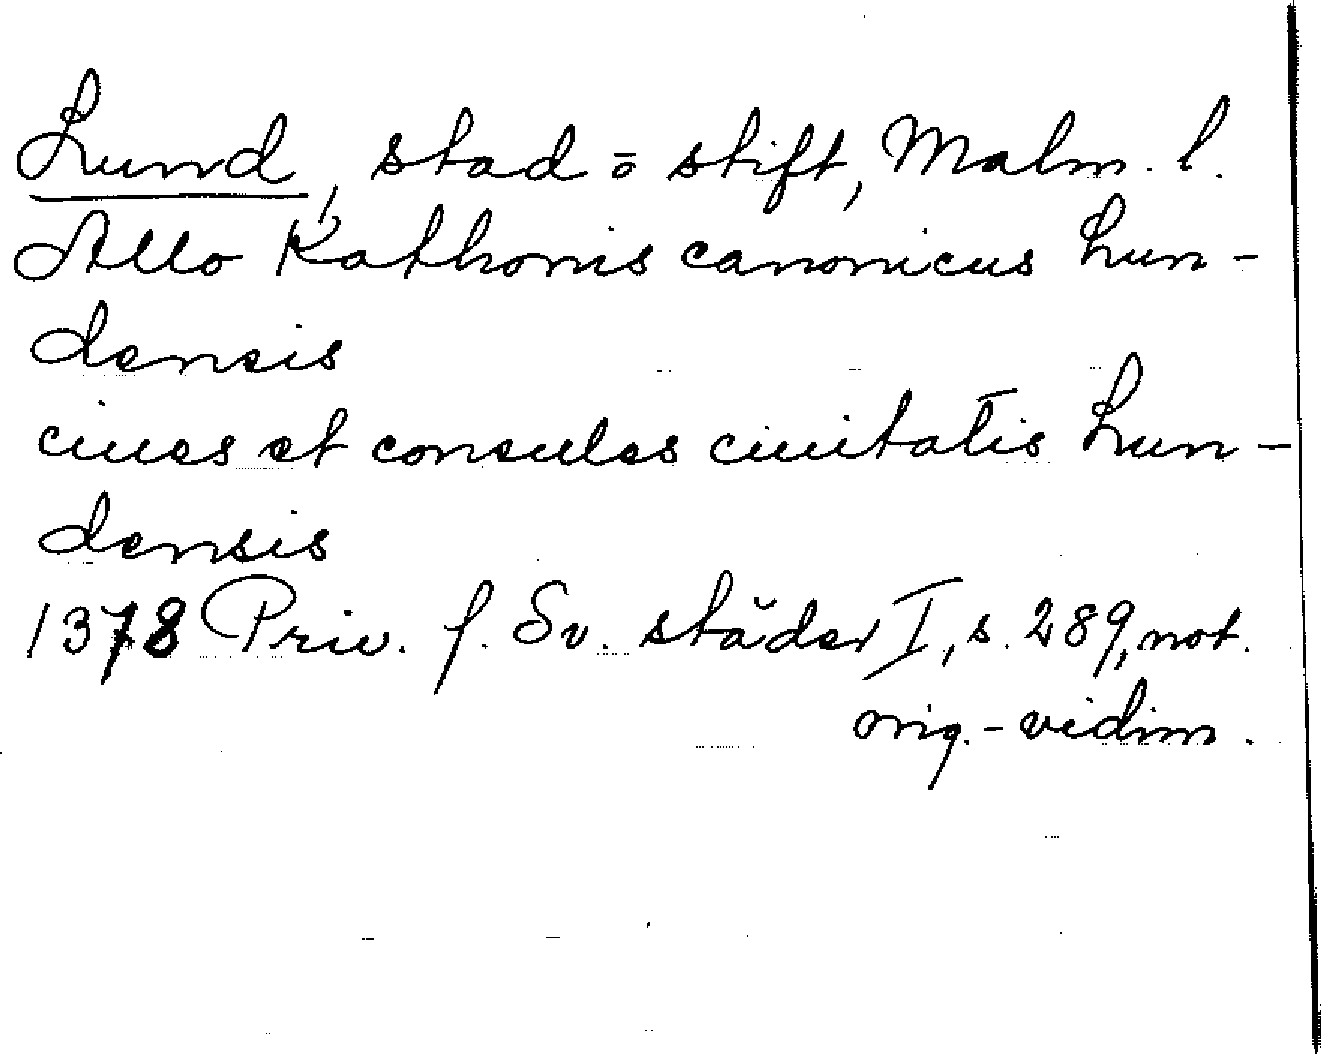 Lund, stad o stift, Malm. l.
Allo Kathonis canonicus Lun-
densis
ciues et consules ciuitatis Lun-
densis
1378 Priv. f. Sv. städer I, s. 289, not.
orig.-vidim.